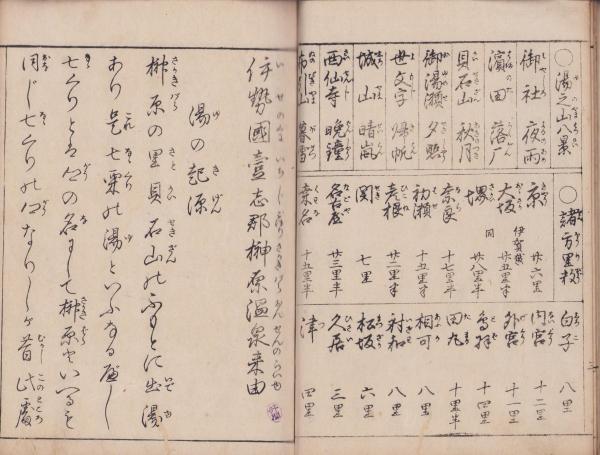 ○湯之山八景
御社 夜雨
濱田 落厂
貝石山 秋月
御湯瀬 夕照
世文字 帰帆
城山 晴嵐
西仙寺 晩鐘
布引山 暮雪
○諸方里数
京 廿六里
大坂 伊賀越 廿五里半
堺 同 廿八里半
奈良 十七里半
初瀬 十五里半
彦根 廿二里半
関 七里
名古屋 廿三里半
桑名 十五里半
白子 八里
内宮 十二里
外宮 十一里
鳥羽 十四里
田丸 十里半
相可 八里
射和 八里
松坂 六里
久居 三里
津 四里
伊勢國壹志郡榊原温泉来由
湯の起源
榊原の里貝石山のふもとに出湯
あり是七栗の湯といふなる屁し
七くりとは郷の名にして榊原といへるを
同じ七くりの郷なりしが昔此處